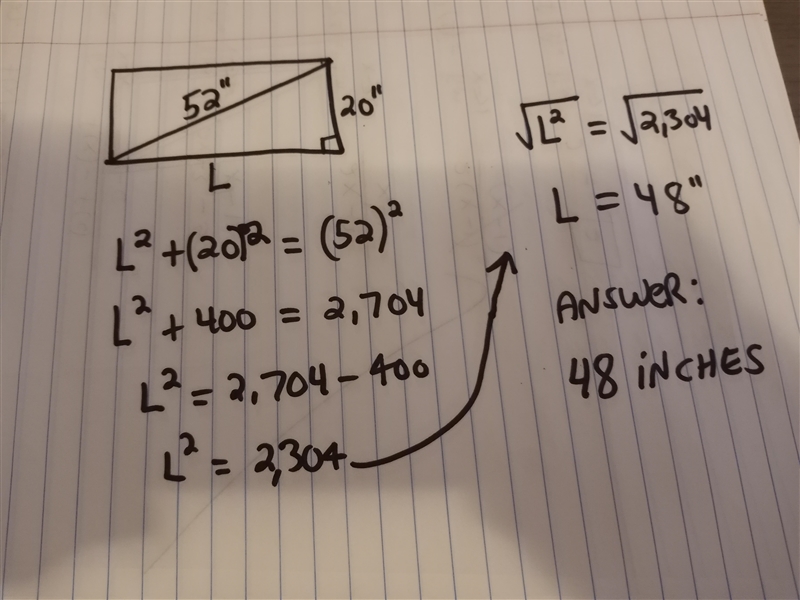 52"
20"
L
L² + (20)² = (52)²
L² + 400 = 2,704
L² = 2,704 - 400
L² = 2,304
√L² = √2,304
L = 48"
ANSWER:
48 INCHES